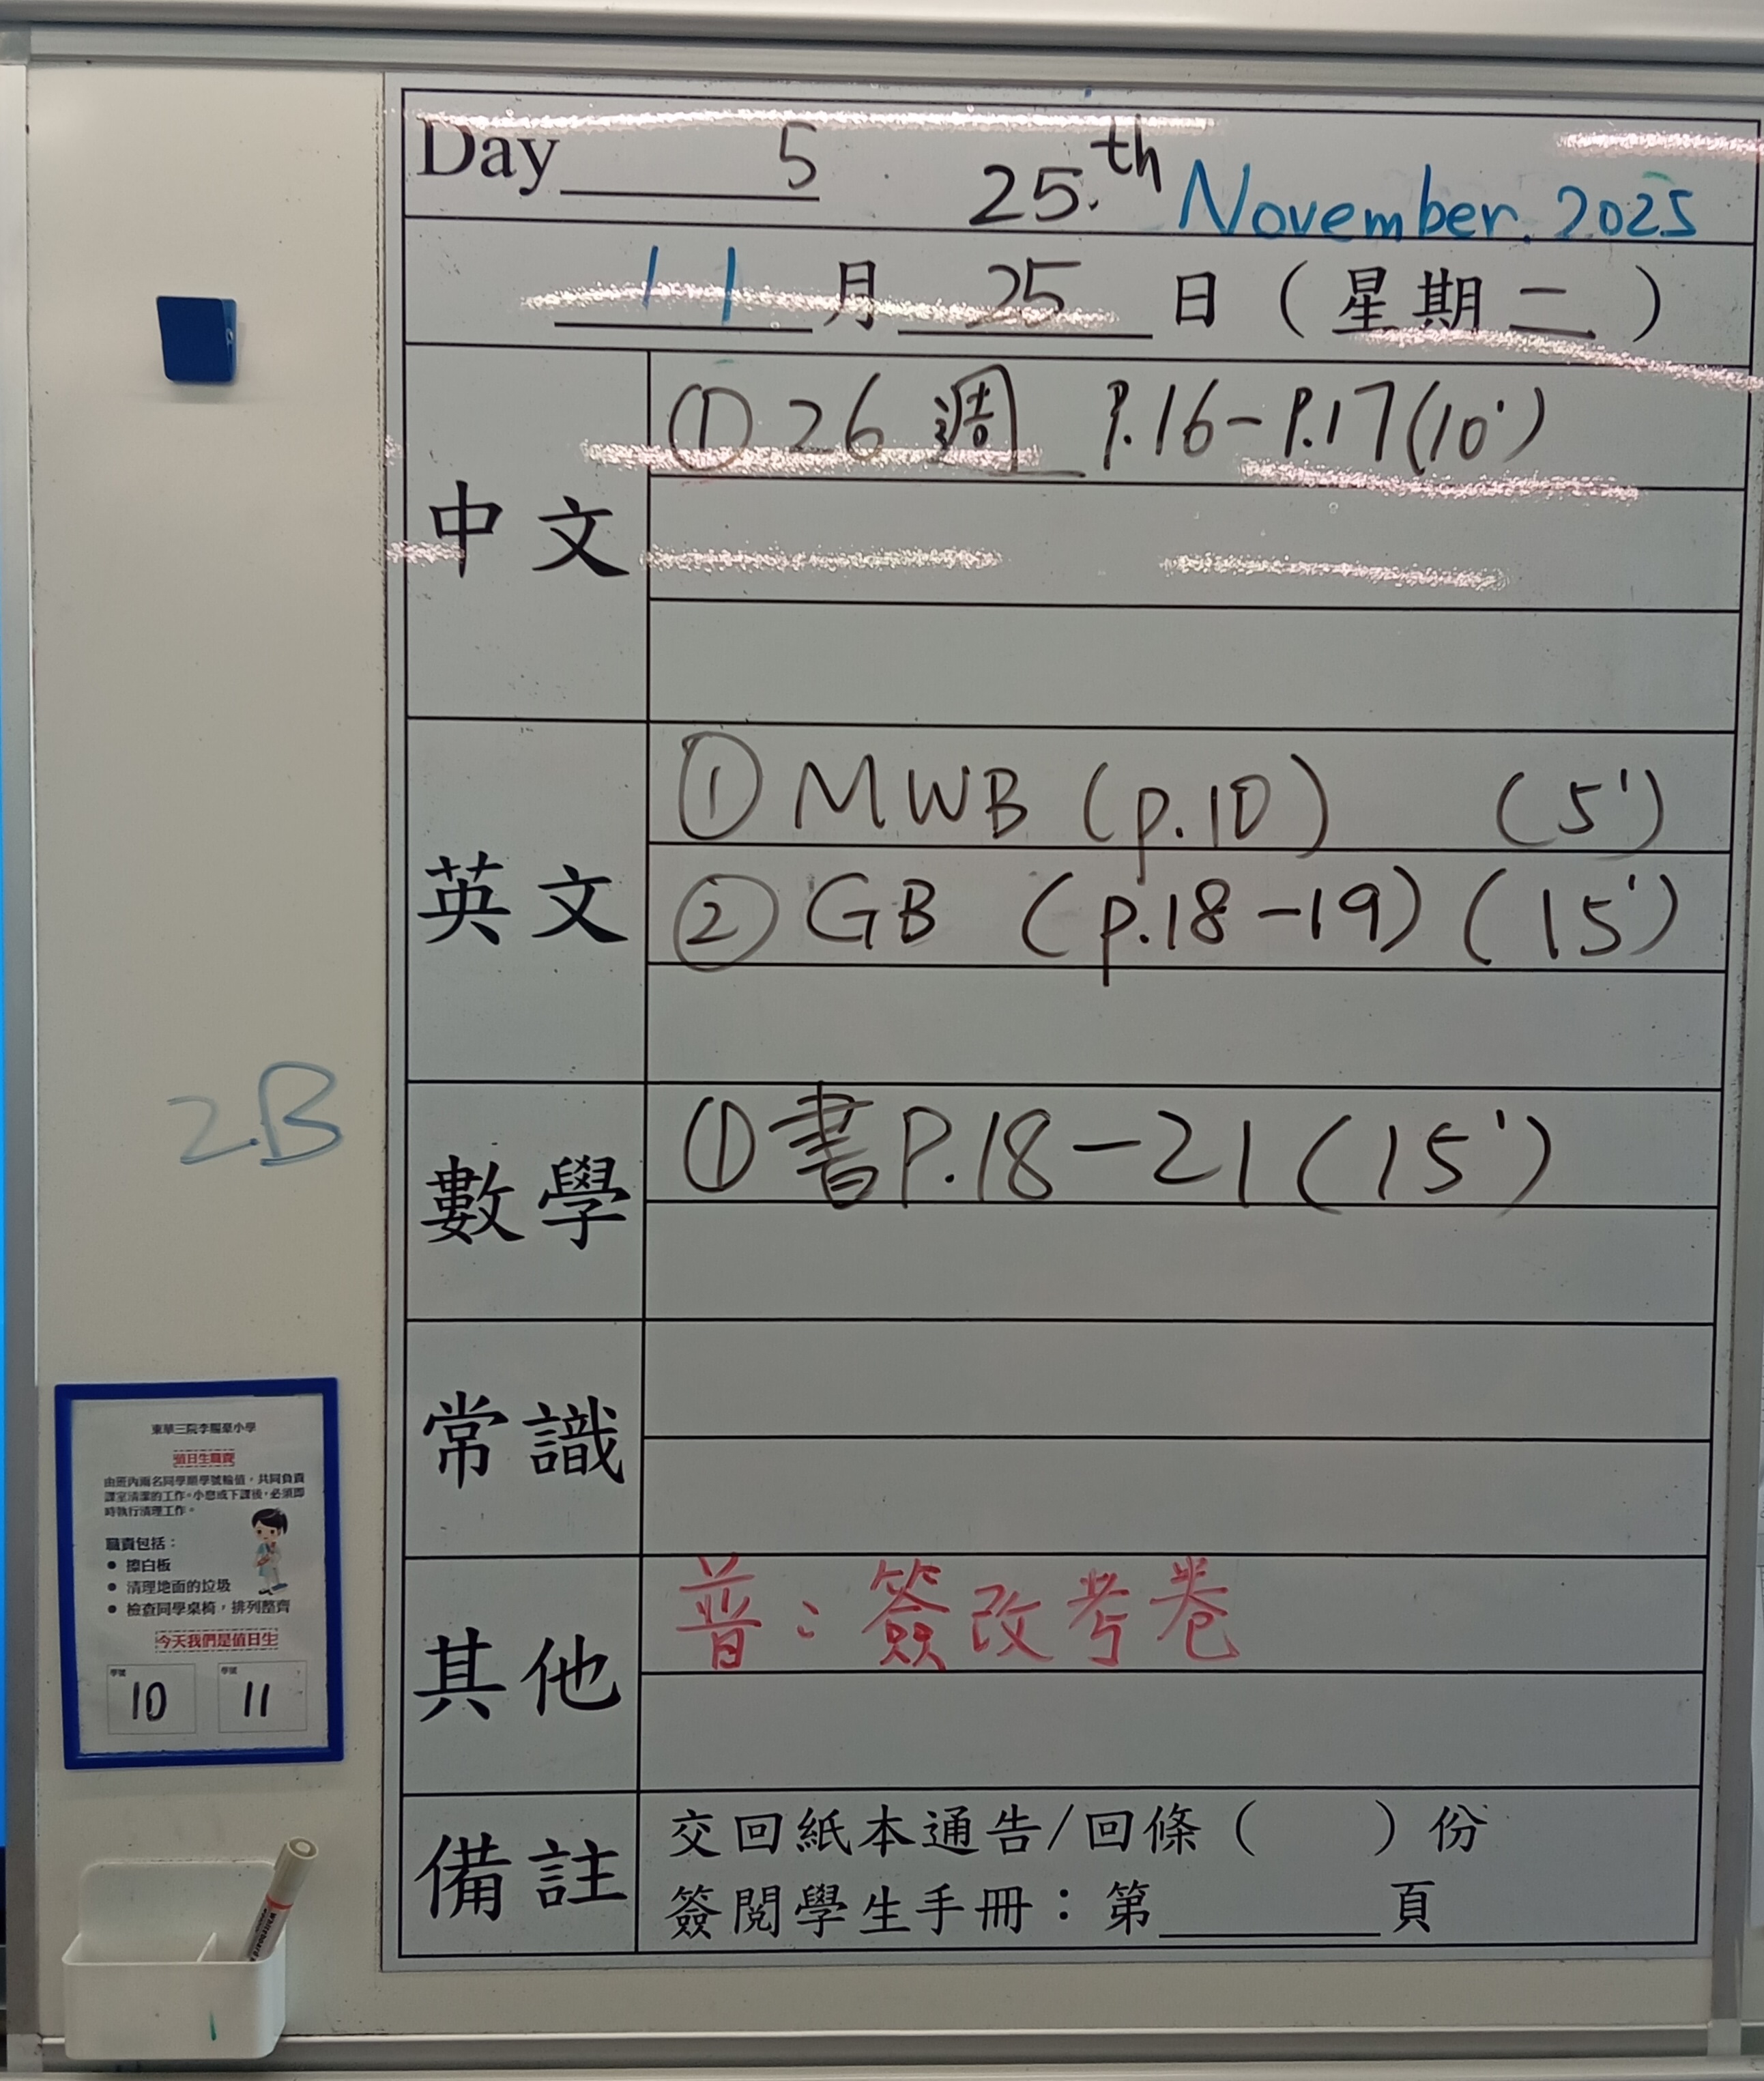 Day 5 25.th November. 2025
11月25日（星期二）
中文
① 26 週 P.16-P.17(10')
英文
① MWB (p.10) (5')
② GB (p.18-19) (15')
數學
① 書P.18-21(15')
常識
其他
普：簽改考卷
備註
交回紙本通告/回條（ ）份
簽閱學生手冊：第____頁
2B
值日生職責
由班內兩名同學順學號輪值，共同負責
課室清潔的工作。小息或下課後，必須即
時執行清理工作。
職責包括：
● 擦白板
● 清理地面的垃圾
● 檢查同學桌椅，排列整齊
今天我們是值日生
學號 學號
10 11